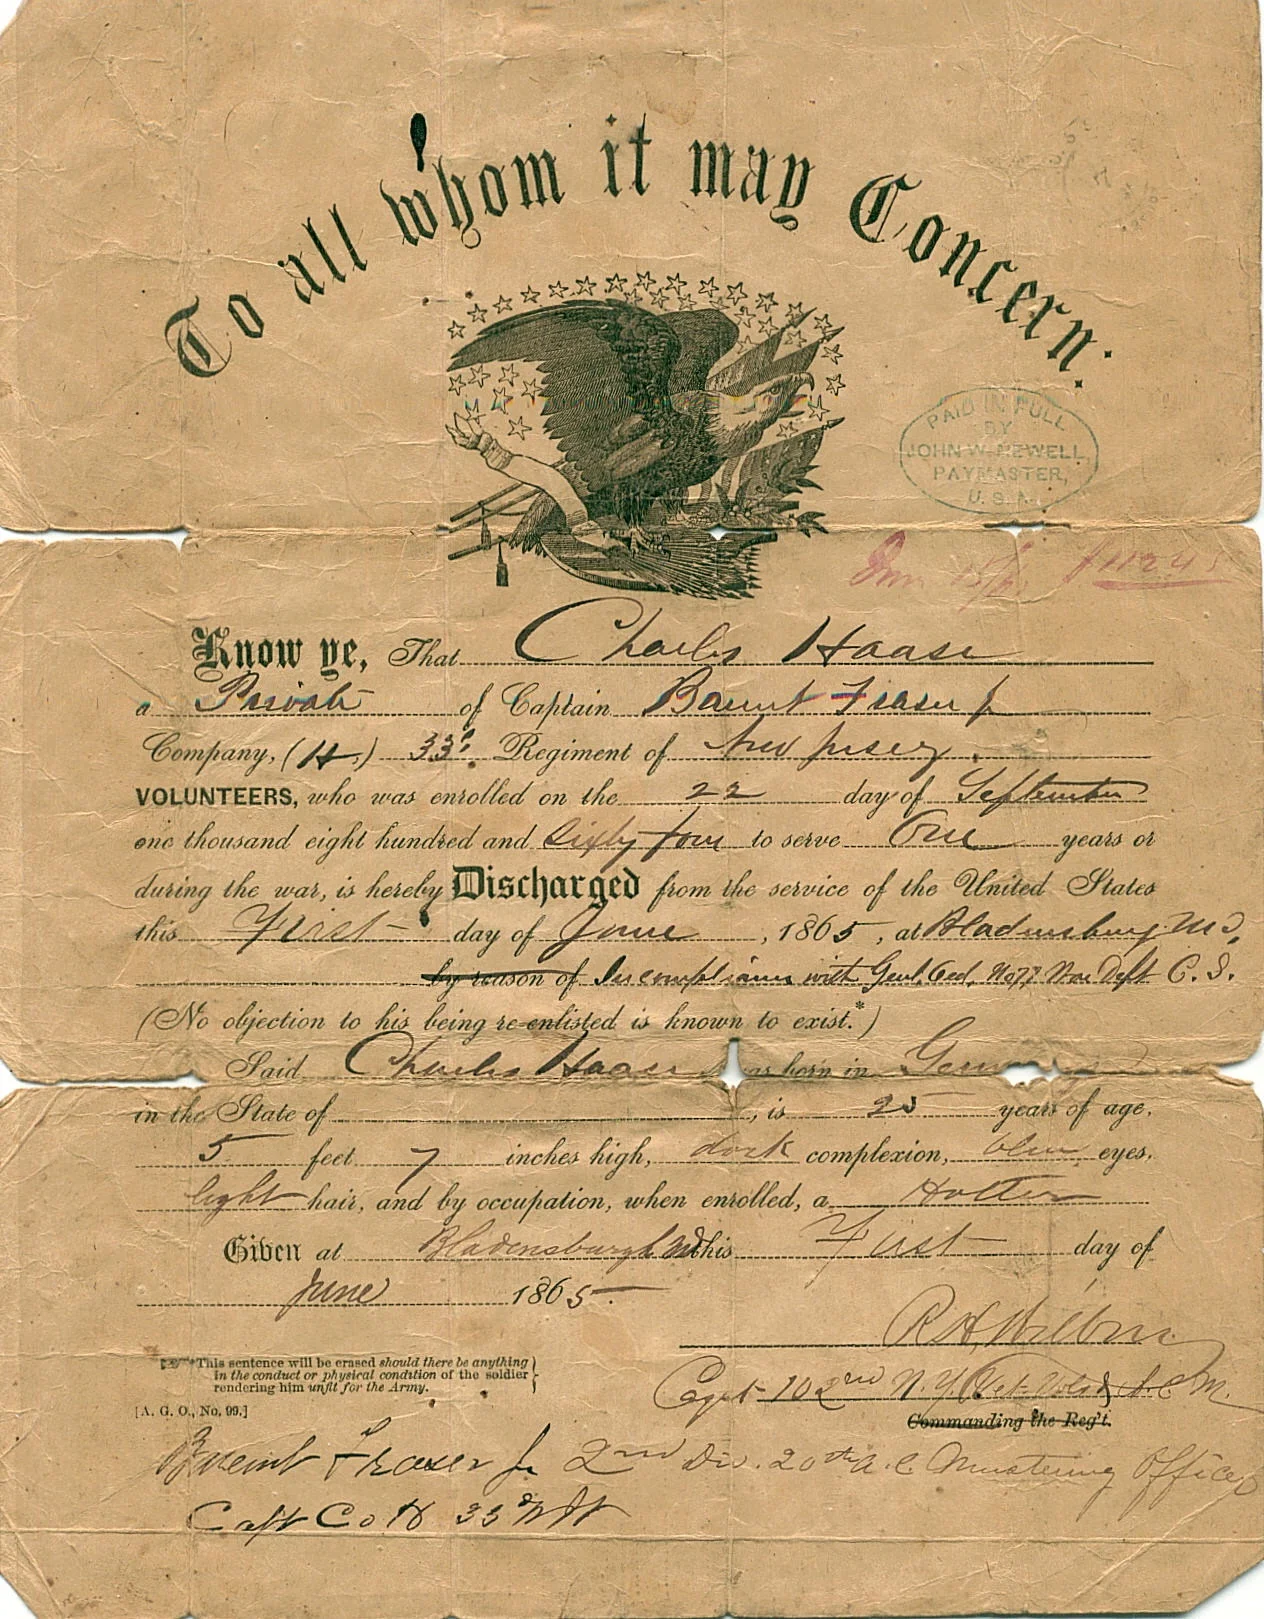 To all whom it may Concern.
PAID IN FULL
BY
JOHN W. NEWELL,
PAYMASTER,
U. S. A.
Know ye, That Charles Haase
a Private of Captain Barent Fraser Jr
Company, (H.) 33d. Regiment of New Jersey.
VOLUNTEERS, who was enrolled on the 22 day of September
one thousand eight hundred and Sixty four to serve One years or
during the war, is hereby Discharged from the service of the United States
this First day of June, 1865, at Bladensburg Md,
by reason of In compliance with Genl. Ord. No 77 War Dept C. S.
(No objection to his being re-enlisted is known to exist.*)
Said Charles Haase was born in Germany
in the State of , is 25 years of age,
5 feet 7 inches high, dark complexion, blue eyes,
light hair, and by occupation, when enrolled, a Hatter
Given at Bladensburgh Md this First day of
June 1865.
*This sentence will be erased should there be anything
in the conduct or physical condition of the soldier
rendering him unfit for the Army.
[A. G. O., No. 99.]
Capt 102nd N. Y. Vet Vols & A. C. M.
Commanding the Reg't.
Barent Fraser Jr 2nd Div. 20th A. C. Mustering Officer
Capt Co H 33d